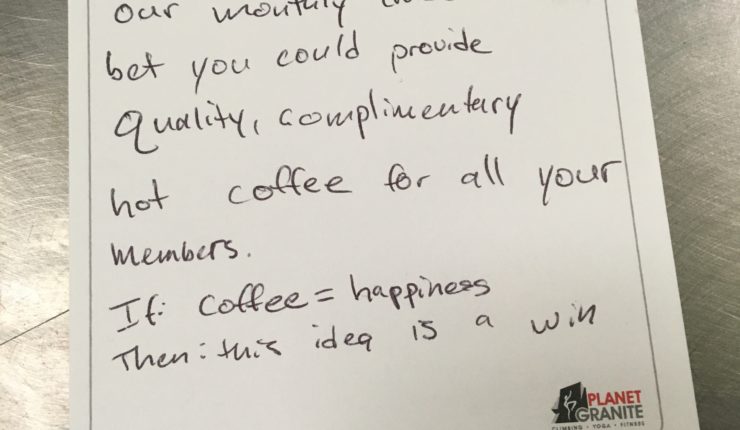 our monthly
bet you could provide
quality, complimentary
hot coffee for all your
members.
If: coffee = happiness
Then: this idea is a win
PLANET
GRANITE
CLIMBING • YOGA • FITNESS